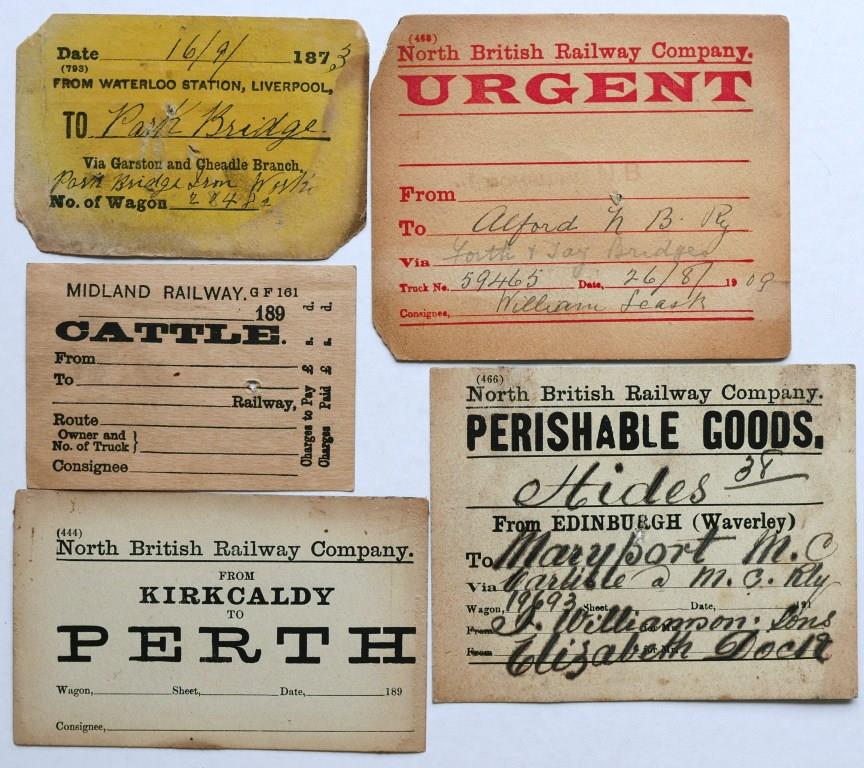 Date 16/9/ 1873
(793)
FROM WATERLOO STATION, LIVERPOOL,
TO Park Bridge
Via Garston and Cheadle Branch,
Park Bridge Iron Works
No. of Wagon
(468)
North British Railway Company.
URGENT
From
To Alford N B. Ry
Via Forth & Tay Bridges
Truck No. 59465 Date, 26/8/ 1909
Consignee, William Leask
MIDLAND RAILWAY. G F 161
189
CATTLE.
From
To
Railway,
Route
Owner and
No. of Truck }
Consignee
Charges to Pay £ s. d.
Charges Paid £ s. d.
(466)
North British Railway Company.
PERISHABLE GOODS.
Hides 38
From EDINBURGH (Waverley)
To Maryport M. C
Via Carlisle a M. C. Rly
Wagon, 19693 Sheet, Date, 191
From J. Williamson. Sons
From Elizabeth Dock
(444)
North British Railway Company.
FROM
KIRKCALDY
TO
PERTH
Wagon, Sheet, Date, 189
Consignee,